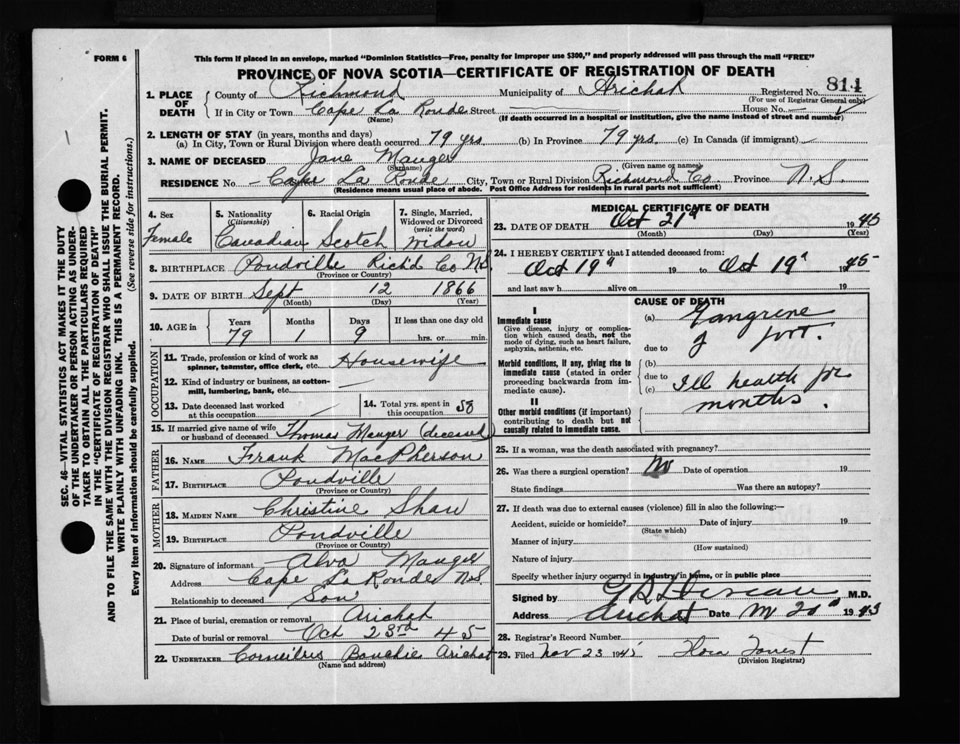 FORM 6
This form if placed in an envelope, marked "Dominion Statistics—Free, penalty for improper use $300," and properly addressed will pass through the mail "FREE"
PROVINCE OF NOVA SCOTIA—CERTIFICATE OF REGISTRATION OF DEATH
SEC. 46—VITAL STATISTICS ACT MAKES IT THE DUTY
OF THE UNDERTAKER OR PERSON ACTING AS UNDER-
TAKER TO OBTAIN ALL THE PARTICULARS REQUIRED
IN THE "CERTIFICATE OF REGISTRATION OF DEATH"
AND TO FILE THE SAME WITH THE DIVISION REGISTRAR WHO SHALL ISSUE THE BURIAL PERMIT.
WRITE PLAINLY WITH UNFADING INK. THIS IS A PERMANENT RECORD.
Every item of information should be carefully supplied. (See reverse side for instructions.)
1. PLACE OF DEATH County of Richmond Municipality of Arichat Registered No. 811
(For use of Registrar General only)
If in City or Town Cape La Ronde Street House No.
(Name) (If death occurred in a hospital or institution, give the name instead of street and number)
2. LENGTH OF STAY (in years, months and days)
(a) In City, Town or Rural Division where death occurred 79 yrs (b) In Province 79 yrs. (c) In Canada (if immigrant) —
3. NAME OF DECEASED Jane Mauger
(Surname) (Given name or names)
RESIDENCE No — Cape La Ronde City, Town or Rural Division Richmond Co. Province N.S.
(Residence means usual place of abode. Post Office Address for residents in rural parts not sufficient)
4. Sex Female
5. Nationality (Citizenship) Canadian
6. Racial Origin Scotch
7. Single, Married, Widowed or Divorced (write the word) widow
8. BIRTHPLACE Poudville Rich'd Co N.S.
(Province or Country)
9. DATE OF BIRTH Sept 12 1866
(Month) (Day) (Year)
10. AGE in Years 79 Months 1 Days 9 If less than one day old
hrs. or min.
OCCUPATION
11. Trade, profession or kind of work as
spinner, teamster, office clerk, etc. Housewife
12. Kind of industry or business, as cotton-
mill, lumbering, bank, etc. —
13. Date deceased last worked
at this occupation —
14. Total yrs. spent in
this occupation 58
15. If married give name of wife
or husband of deceased Thomas Mauger (deceased)
FATHER
16. NAME Frank MacPherson
17. BIRTHPLACE Poudville
(Province or Country)
MOTHER
18. MAIDEN NAME Christine Shaw
19. BIRTHPLACE Poudville
(Province or Country)
20. Signature of informant Alva Mauger
Address Cape La Ronde N.S.
Relationship to deceased Son
21. Place of burial, cremation or removal Arichat
Date of burial or removal Oct 23rd 45
22. UNDERTAKER Corneilius Bouchie Arichat
(Name and address)
MEDICAL CERTIFICATE OF DEATH
23. DATE OF DEATH Oct 21 1945
(Month) (Day) (Year)
24. I HEREBY CERTIFY that I attended deceased from:
Oct 19 19 to Oct 19 1945
and last saw h alive on 19
CAUSE OF DEATH
I
Immediate cause
Give disease, injury or complica-
tion which caused death, not the
mode of dying, such as heart failure,
asphyxia, asthenia, etc.
(a) Gangrene
due to of foot
Morbid conditions, if any, giving rise to
immediate cause (stated in order
proceeding backwards from im-
mediate cause).
(b)
due to Ill health for
(c) months.
II
Other morbid conditions (if important)
contributing to death but not
causally related to immediate cause.
25. If a woman, was the death associated with pregnancy?
26. Was there a surgical operation? No Date of operation 19
State findings Was there an autopsy?
27. If death was due to external causes (violence) fill in also the following:—
Accident, suicide or homicide? Date of injury 19
(State which)
Manner of injury
(How sustained)
Nature of injury
Specify whether injury occurred in industry, in home, or in public place
Signed by M.D.
Address Arichat Date
28. Registrar's Record Number
29. Filed Nov 23 1945 Flora
(Division Registrar)